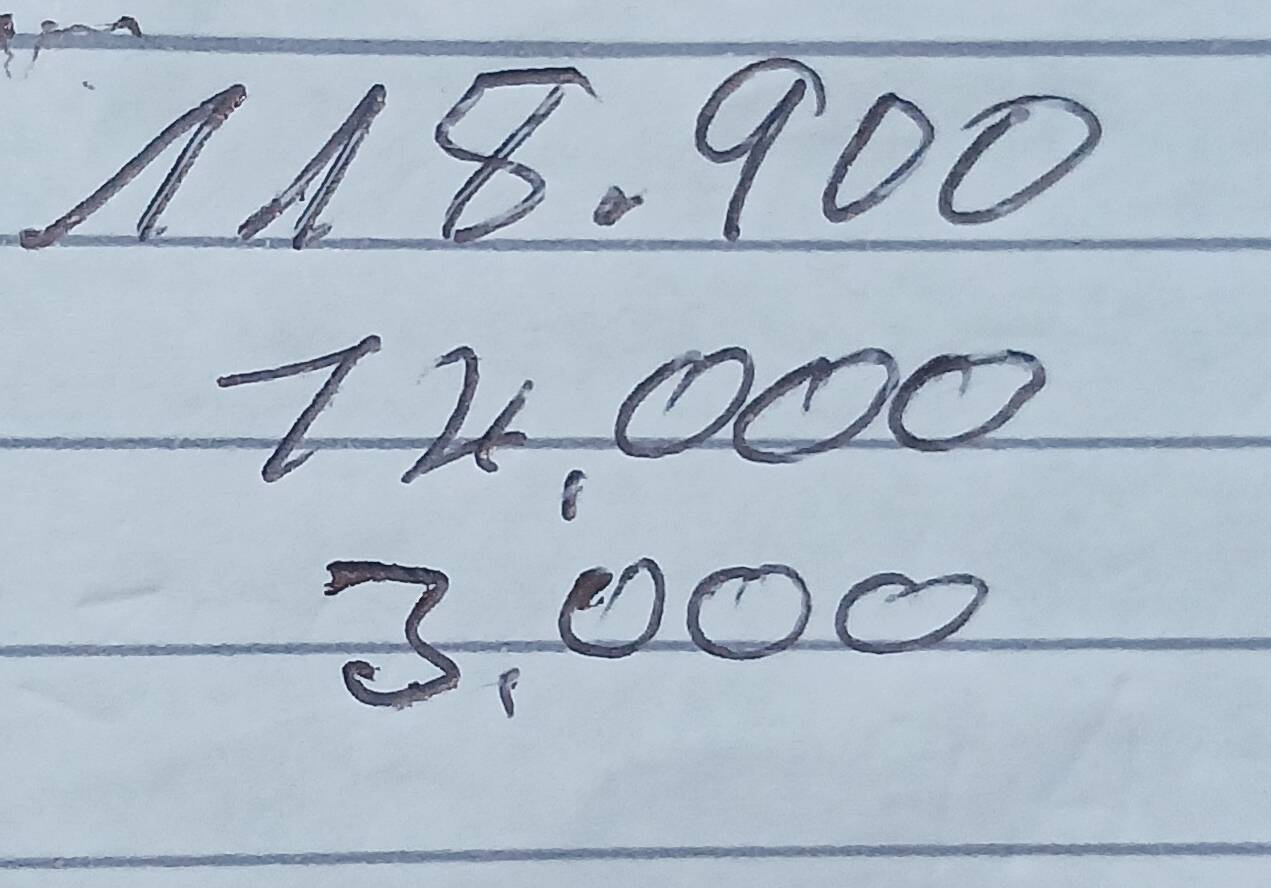 118.900
12,000
3,000